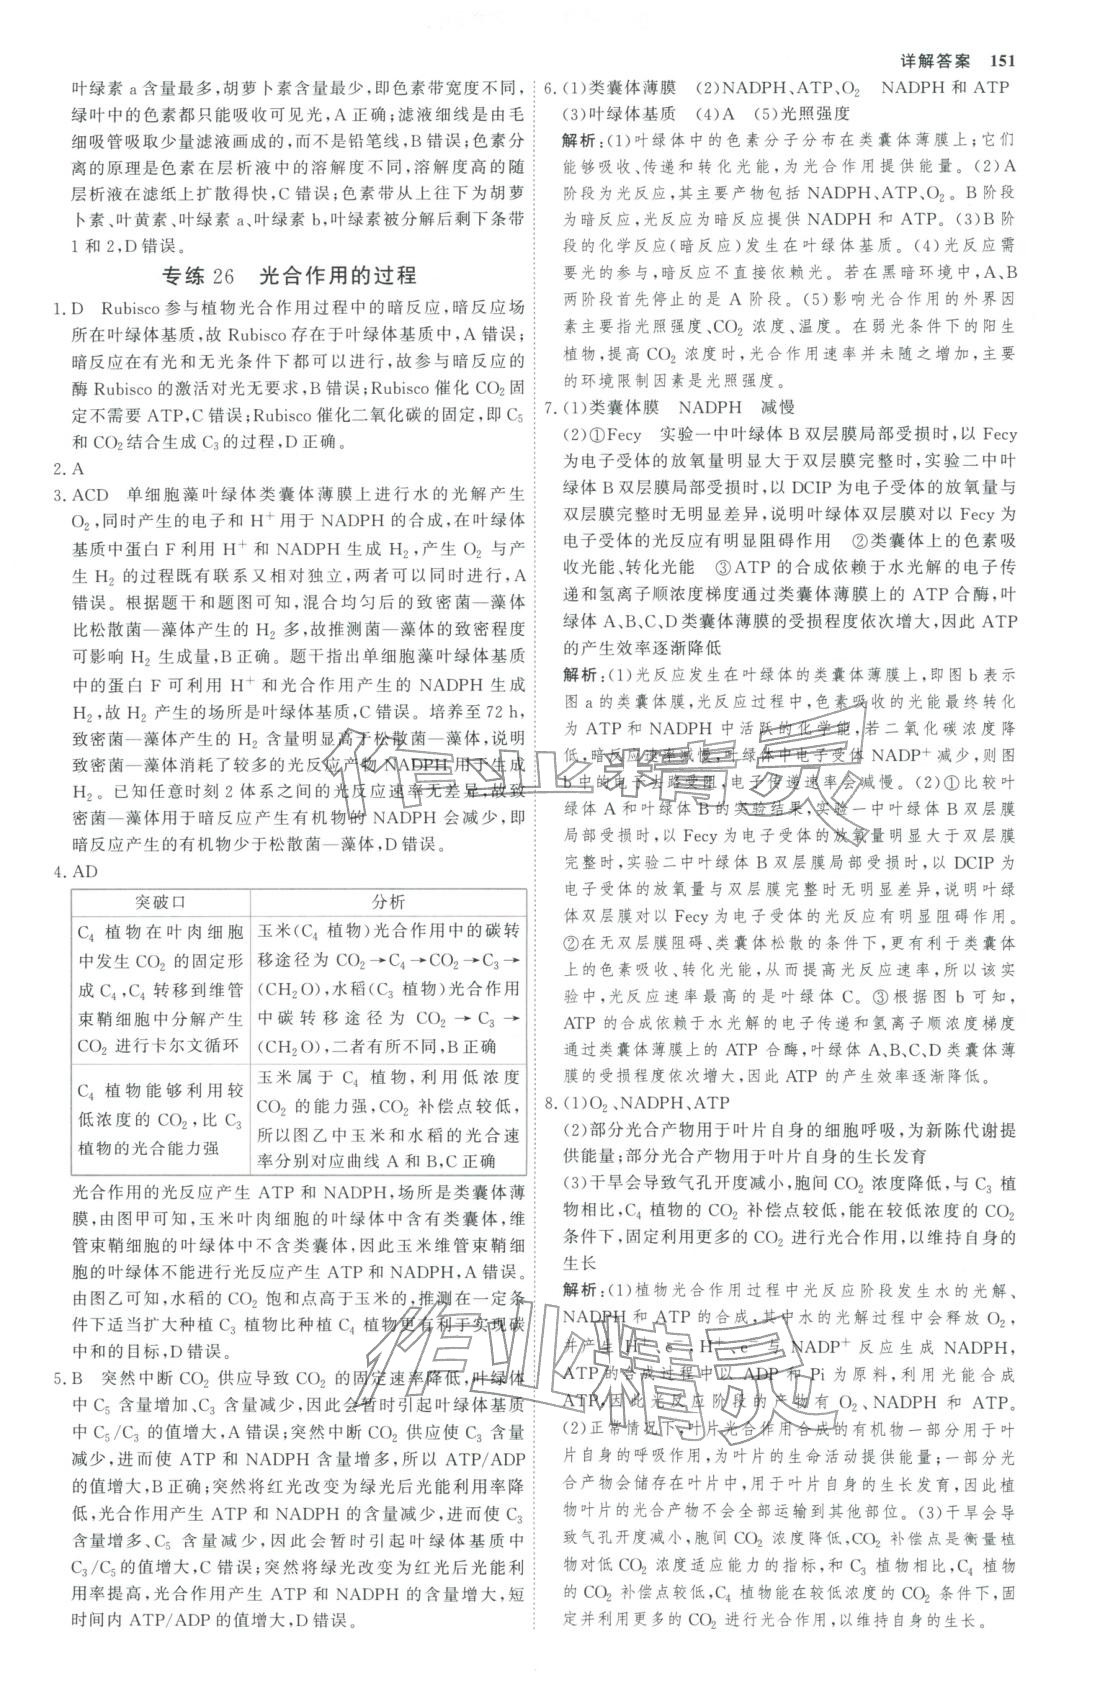 详解答案 151
叶绿素 a 含量最多,胡萝卜素含量最少,即色素带宽度不同,
绿叶中的色素都只能吸收可见光,A 正确;滤液细线是由毛
细吸管吸取少量滤液画成的,而不是铅笔线,B 错误;色素分
离的原理是色素在层析液中的溶解度不同,溶解度高的随
层析液在滤纸上扩散得快,C 错误;色素带从上往下为胡萝
卜素、叶黄素、叶绿素 a、叶绿素 b,叶绿素被分解后剩下条带
1 和 2,D 错误。
专练 26 光合作用的过程
1. D Rubisco 参与植物光合作用过程中的暗反应,暗反应场
所在叶绿体基质,故 Rubisco 存在于叶绿体基质中,A 错误;
暗反应在有光和无光条件下都可以进行,故参与暗反应的
酶 Rubisco 的激活对光无要求,B 错误;Rubisco 催化 CO₂ 固
定不需要 ATP,C 错误;Rubisco 催化二氧化碳的固定,即 C₅
和 CO₂ 结合生成 C₃ 的过程,D 正确。
2. A
3. ACD 单细胞藻叶绿体类囊体薄膜上进行水的光解产生
O₂,同时产生的电子和 H⁺ 用于 NADPH 的合成,在叶绿体
基质中蛋白 F 利用 H⁺ 和 NADPH 生成 H₂,产生 O₂ 与产
生 H₂ 的过程既有联系又相对独立,两者可以同时进行,A
错误。根据题干和题图可知,混合均匀后的致密菌—藻体
比松散菌—藻体产生的 H₂ 多,故推测菌—藻体的致密程度
可影响 H₂ 生成量,B 正确。题干指出单细胞藻叶绿体基质
中的蛋白 F 可利用 H⁺ 和光合作用产生的 NADPH 生成
H₂,故 H₂ 产生的场所是叶绿体基质,C 错误。培养至 72 h,
致密菌—藻体产生的 H₂ 含量明显高于松散菌—藻体,说明
致密菌—藻体消耗了较多的光反应产物 NADPH 用于生成
H₂。已知任意时刻 2 体系之间的光反应速率无差异,故致
密菌—藻体用于暗反应产生有机物的 NADPH 会减少,即
暗反应产生的有机物少于松散菌—藻体,D 错误。
4. AD
突破口 分析
C₄ 植物在叶肉细胞
中发生 CO₂ 的固定形
成 C₄,C₄ 转移到维管
束鞘细胞中分解产生
CO₂ 进行卡尔文循环
玉米(C₄ 植物)光合作用中的碳转
移途径为 CO₂→C₄→CO₂→C₃→
(CH₂O),水稻(C₃ 植物)光合作用
中碳转移途径为 CO₂→C₃→
(CH₂O),二者有所不同,B 正确
C₄ 植物能够利用较
低浓度的 CO₂,比 C₃
植物的光合能力强
玉米属于 C₄ 植物,利用低浓度
CO₂ 的能力强,CO₂ 补偿点较低,
所以图乙中玉米和水稻的光合速
率分别对应曲线 A 和 B,C 正确
光合作用的光反应产生 ATP 和 NADPH,场所是类囊体薄
膜,由图甲可知,玉米叶肉细胞的叶绿体中含有类囊体,维
管束鞘细胞的叶绿体中不含类囊体,因此玉米维管束鞘细胞
的叶绿体不能进行光反应产生 ATP 和 NADPH,A 错误。
由图乙可知,水稻的 CO₂ 饱和点高于玉米的,推测在一定条
件下适当扩大种植 C₃ 植物比种植 C₄ 植物更有利于实现碳
中和的目标,D 错误。
5. B 突然中断 CO₂ 供应导致 CO₂ 的固定速率降低,叶绿体
中 C₅ 含量增加、C₃ 含量减少,因此会暂时引起叶绿体基质
中 C₅/C₃ 的值增大,A 错误;突然中断 CO₂ 供应使 C₃ 含量
减少,进而使 ATP 和 NADPH 含量增多,所以 ATP/ADP
的值增大,B 正确;突然将红光改变为绿光后光能利用率降
低,光合作用产生 ATP 和 NADPH 的含量减少,进而使 C₃
含量增多、C₅ 含量减少,因此会暂时引起叶绿体基质中
C₃/C₅ 的值增大,C 错误;突然将绿光改变为红光后光能利
用率提高,光合作用产生 ATP 和 NADPH 的含量增多,短
时间内 ATP/ADP 的值增大,D 错误。
6. (1)类囊体薄膜 (2)NADPH、ATP、O₂ NADPH 和 ATP
(3)叶绿体基质 (4)A (5)光照强度
解析:(1)叶绿体中的色素分子分布在类囊体薄膜上;它们
能够吸收、传递和转化光能,为光合作用提供能量。(2)A
阶段为光反应,其主要产物包括 NADPH、ATP、O₂。B 阶段
为暗反应,光反应为暗反应提供 NADPH 和 ATP。(3)B 阶
段的化学反应(暗反应)发生在叶绿体基质。(4)光反应需
要光的参与,暗反应不直接依赖光。若在黑暗环境中,A、B
两阶段首先停止的是 A 阶段。(5)影响光合作用的外界因
素主要指光照强度、CO₂ 浓度、温度。在弱光条件下的阳生
植物,提高 CO₂ 浓度时,光合作用速率并未随之增加,主要
的环境限制因素是光照强度。
7. (1)类囊体膜 NADPH 减慢
(2)①Fecy 实验一中叶绿体 B 双层膜局部受损时,以 Fecy
为电子受体的放氧量明显大于双层膜完整时,实验二中叶
绿体 B 双层膜局部受损时,以 DCIP 为电子受体的放氧量与
双层膜完整时无明显差异,说明叶绿体双层膜对以 Fecy 为
电子受体的光反应有明显阻碍作用 ②类囊体上的色素吸
收光能、转化光能 ③ATP 的合成依赖于水光解的电子传
递和氢离子顺浓度梯度通过类囊体薄膜上的 ATP 合酶,叶
绿体 A、B、C、D 类囊体薄膜的受损程度依次增大,因此 ATP
的产生效率逐渐降低
解析:(1)光反应发生在叶绿体的类囊体薄膜上,即图 b 表示
图 a 的类囊体膜,光反应过程中,色素吸收的光能最终转化
为 ATP 和 NADPH 中活跃的化学能,若二氧化碳浓度降
低,暗反应速率减慢,叶绿体中电子受体 NADP⁺ 减少,则图
b 中的电子去路受阻,电子传递速率会减慢。(2)①比较叶
绿体 A 和叶绿体 B 的实验结果,实验一中叶绿体 B 双层膜
局部受损时,以 Fecy 为电子受体的放氧量明显大于双层膜
完整时,实验二中叶绿体 B 双层膜局部受损时,以 DCIP 为
电子受体的放氧量与双层膜完整时无明显差异,说明叶绿
体双层膜对以 Fecy 为电子受体的光反应有明显阻碍作用。
②在无双层膜阻碍、类囊体松散的条件下,更有利于类囊体
上的色素吸收、转化光能,从而提高光反应速率,所以该实
验中,光反应速率最高的是叶绿体 C。③根据图 b 可知,
ATP 的合成依赖于水光解的电子传递和氢离子顺浓度梯度
通过类囊体薄膜上的 ATP 合酶,叶绿体 A、B、C、D 类囊体薄
膜的受损程度依次增大,因此 ATP 的产生效率逐渐降低。
8. (1)O₂、NADPH、ATP
(2)部分光合产物用于叶片自身的细胞呼吸,为新陈代谢提
供能量;部分光合产物用于叶片自身的生长发育
(3)干旱会导致气孔开度减小,胞间 CO₂ 浓度降低,与 C₃ 植
物相比,C₄ 植物的 CO₂ 补偿点较低,能在较低浓度的 CO₂
条件下,固定利用更多的 CO₂ 进行光合作用,以维持自身的
生长
解析:(1)植物光合作用过程中光反应阶段发生水的光解、
NADPH 和 ATP 的合成,其中水的光解过程中会释放 O₂,
并产生 H⁺、e⁻,H⁺、e⁻ 与 NADP⁺ 反应生成 NADPH,
ATP 的合成过程中以 ADP 和 Pi 为原料,利用光能合成
ATP,因此光反应阶段的产物有 O₂、NADPH、ATP。
(2)正常情况下,叶片光合作用合成的有机物一部分用于叶
片自身的呼吸作用,为叶片的生命活动提供能量;一部分光
合产物会储存在叶片中,用于叶片自身的生长发育,因此植
物叶片的光合产物不会全部运输到其他部位。(3)干旱会导
致气孔开度减小,胞间 CO₂ 浓度降低,CO₂ 补偿点是衡量植
物对低 CO₂ 浓度适应能力的指标,和 C₃ 植物相比,C₄ 植物
的 CO₂ 补偿点较低,C₄ 植物能在较低浓度的 CO₂ 条件下,固
定并利用更多的 CO₂ 进行光合作用,以维持自身的生长。
作业精灵
作业精灵